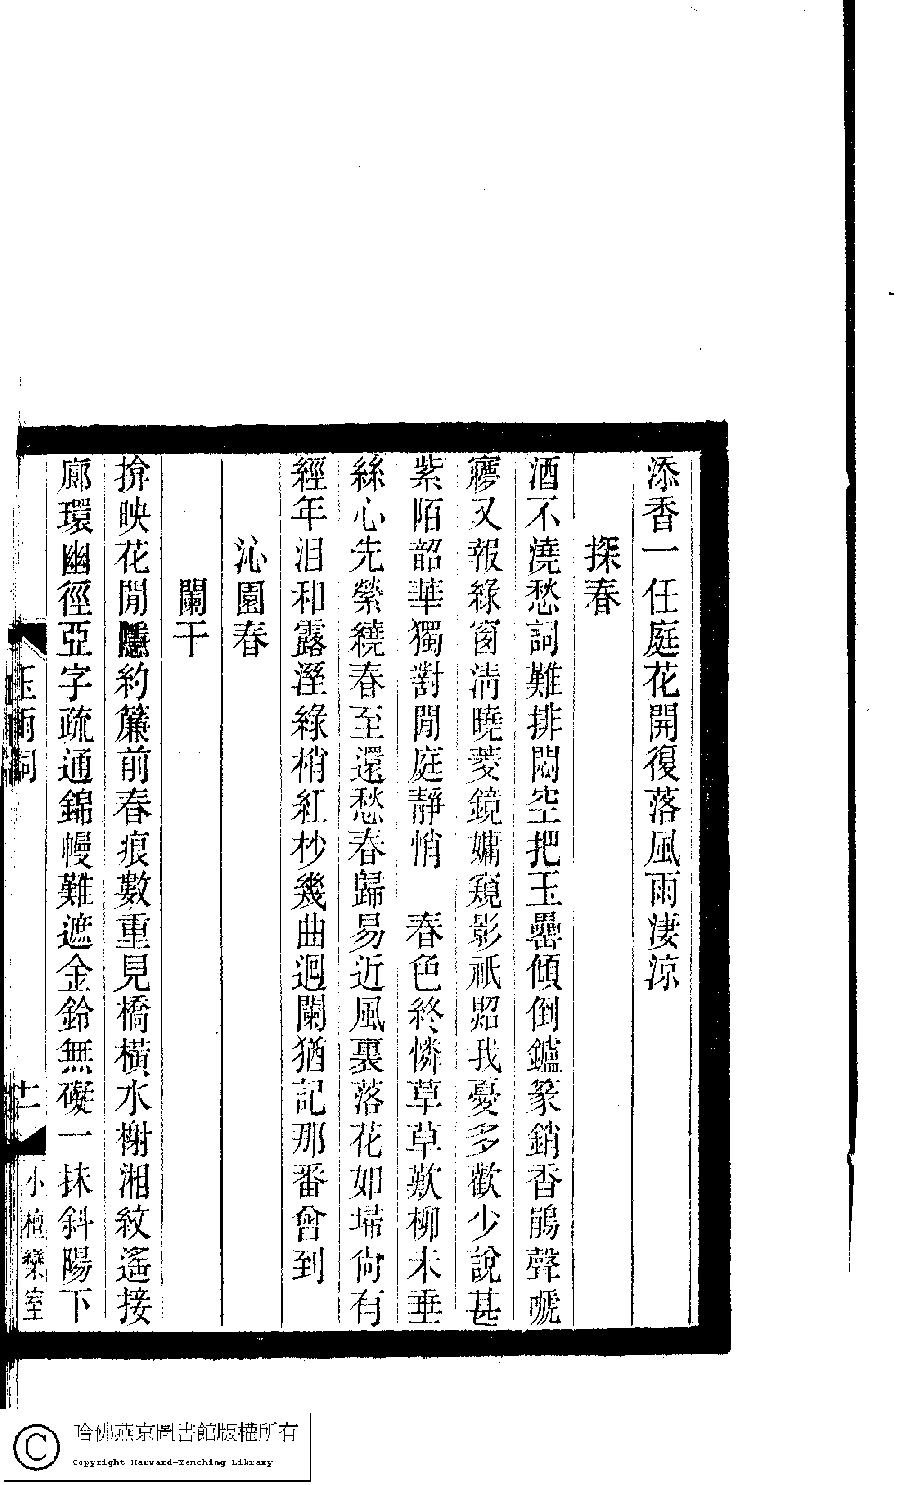 添香一任庭花開復落風雨淒涼
探春
酒不澆愁詞難排悶空把玉罍傾倒鑪篆銷香鵑聲唬
寢又報綠窗清曉菱鏡慵窺影祇照我憂多歡少說甚
紫陌韶華獨對閒庭靜悄　春色終憐草草歎柳未垂
絲心先縈繞春至還愁春歸易近風裏落花如埽尙有
經年泪和露溼綠梢紅杪幾曲迴闌猶記那番曾到
沁園春
闌干
揜映花閒隱約簾前春痕數重見橋橫水榭湘紋遙接
廊環幽徑亞字疏通錦幔難遮金鈴無礙一抹斜陽下
玉雨詞
十一
小檀欒室
哈佛燕京圖書館版權所有
Copyright Harvard-Yenching Library